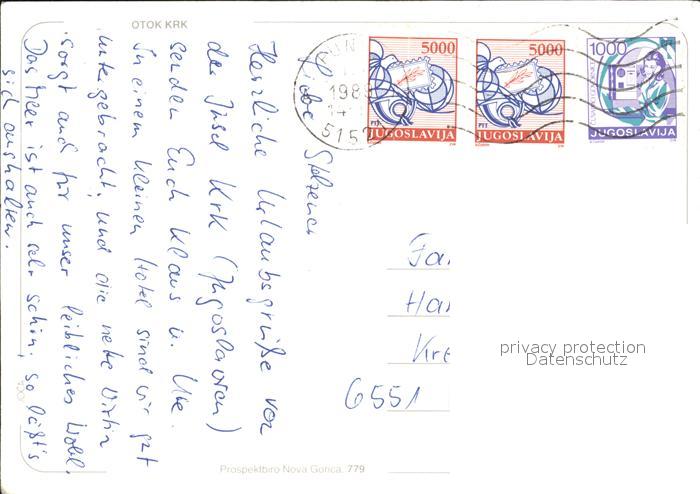 OTOK KRK
5000
5000
1000
JUGOSLAVIJA
JUGOSLAVIJA
JUGOSLAVIJA
PTT
PTT
198
14
5151
Liebe
Herzliche Urlaubsgrüße von
der Insel Krk (Jugoslawien)
senden Euch Klaus u. Ute.
In einem kleinen Hotel sind wir gut
untergebracht, und die nette Wirtin
sorgt auch für unser leibliches Wohl.
Das Meer ist auch sehr schön, so läßt's
sich aushalten.
Fa
Ha
Kre
6551
privacy protection
Datenschutz
Prospektbiro Nova Gorica, 779